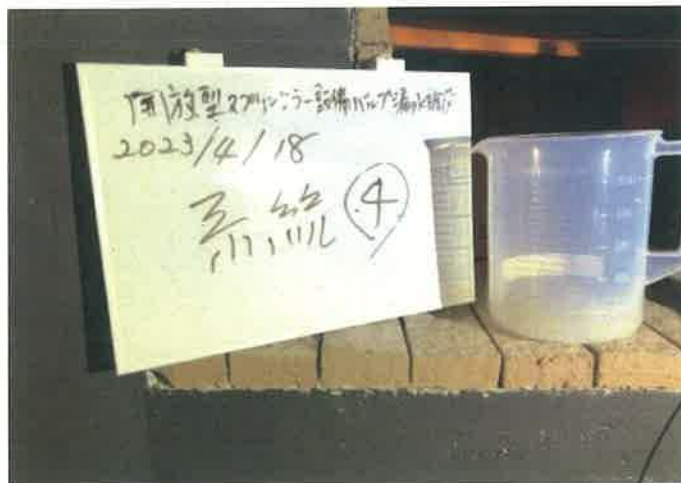 開放型スプリンクラー設備バルブ漏水確認
2023/4/18
系統④